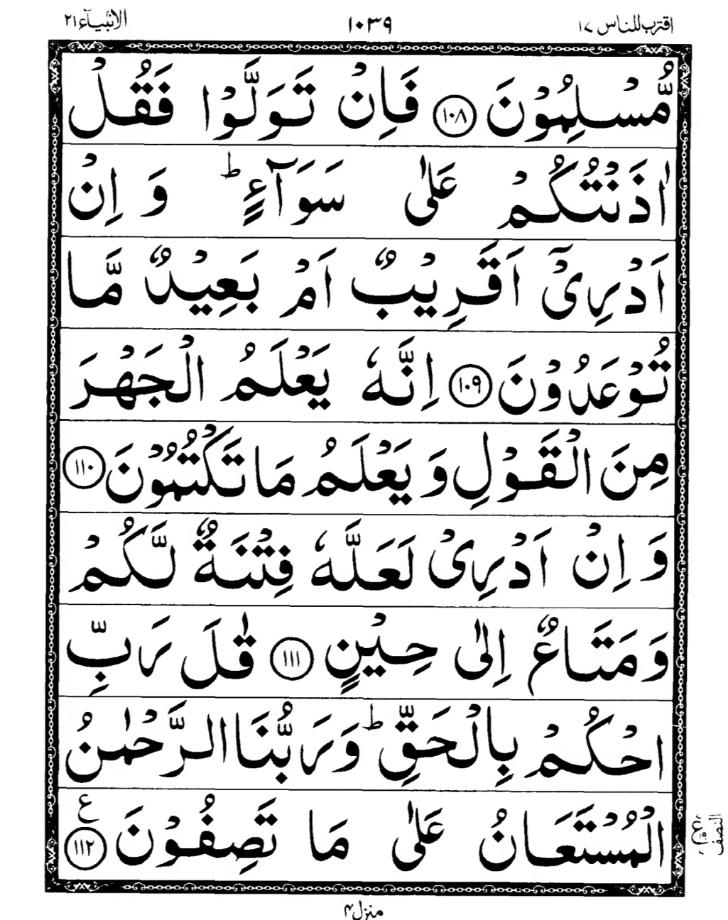 اقترب للناس ١٧ ١٠٣٩ الانبيآء ٢١
مُّسْلِمُوْنَ ﴿١٠٨﴾ فَاِنْ تَوَلَّوْا فَقُلْ
اٰذَنْتُكُمْ عَلٰى سَوَآءٍ ؕ وَ اِنْ
اَدْرِىْۤ اَقَرِيْبٌ اَمْ بَعِيْدٌ مَّا
تُوْعَدُوْنَ ﴿١٠٩﴾ اِنَّهٗ يَعْلَمُ الْجَهْرَ
مِنَ الْقَوْلِ وَ يَعْلَمُ مَا تَكْتُمُوْنَ ﴿١١٠﴾
وَ اِنْ اَدْرِىْ لَعَلَّهٗ فِتْنَةٌ لَّكُمْ
وَ مَتَاعٌ اِلٰى حِيْنٍ ﴿١١١﴾ قٰلَ رَبِّ
احْكُمْ بِالْحَقِّ ؕ وَ رَبُّنَا الرَّحْمٰنُ
الْمُسْتَعَانُ عَلٰى مَا تَصِفُوْنَ ﴿١١٢﴾ ع
النصف
منزل۴